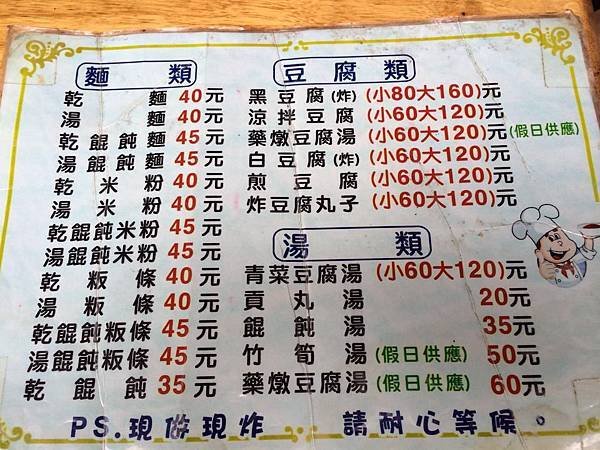 麵類
乾麵 40元
湯麵 40元
乾餛飩麵 45元
湯餛飩麵 45元
乾米粉 40元
湯米粉 40元
乾餛飩米粉 45元
湯餛飩米粉 45元
乾粄條 40元
湯粄條 40元
乾餛飩粄條 45元
湯餛飩粄條 45元
乾餛飩 35元
豆腐類
黑豆腐(炸) (小80大160)元
涼拌豆腐 (小60大120)元
藥燉豆腐湯 (小60大120)元(假日供應)
白豆腐(炸) (小60大120)元
煎豆腐 (小60大120)元
炸豆腐丸子 (小60大120)元
湯類
青菜豆腐湯 (小60大120)元
貢丸湯 20元
餛飩湯 35元
竹筍湯 (假日供應) 50元
藥燉豆腐湯 (假日供應) 60元
PS.現做現炸 請耐心等候。